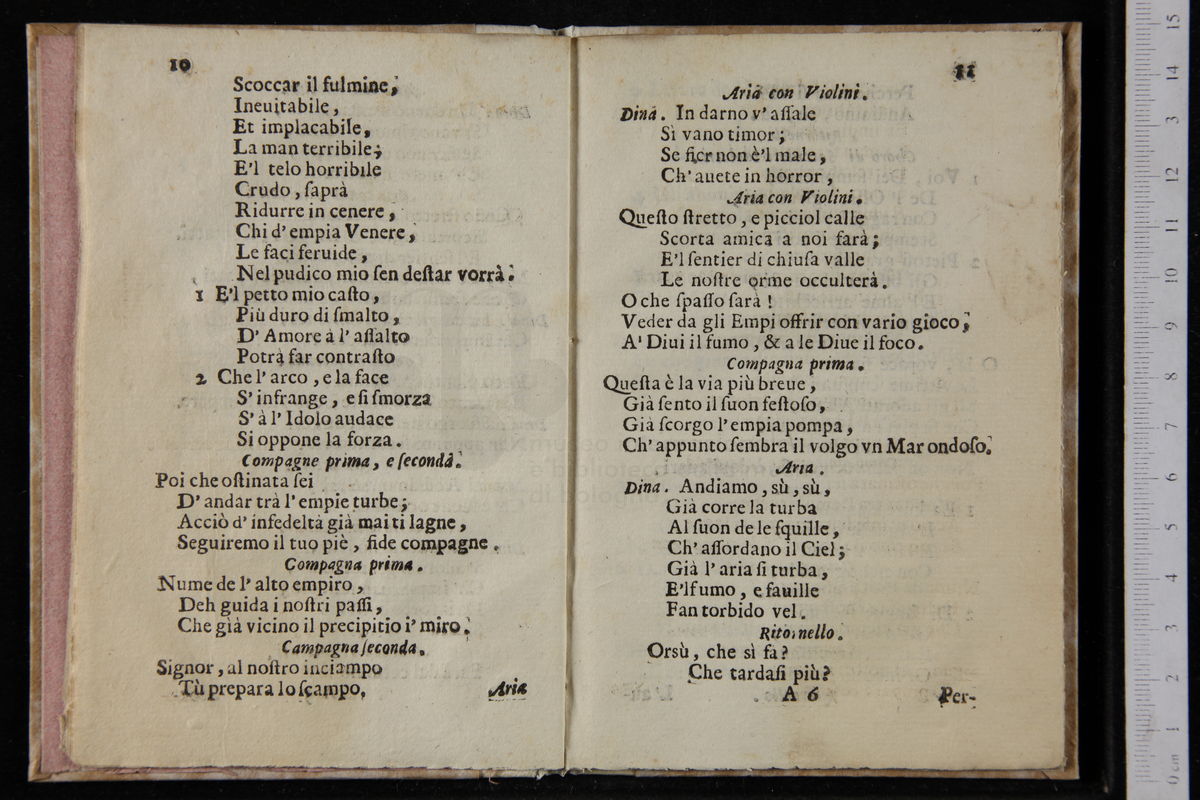 10
Scoccar il fulmine;
Ineuitabile,
Et implacabile,
La man terribile;
E'l telo horribile
Crudo, ſaprà
Ridurre in cenere,
Chi d' empia Venere,
Le faci feruide,
Nel pudico mio ſen deſtar vorrà.
1 E'l petto mio caſto,
Più duro di ſmalto,
D' Amore à l' aſſalto
Potrà far contraſto
2 Che l' arco, e la face
S' infrange, e ſi ſmorza
S' à l' Idolo audace
Si oppone la forza.
Compagne prima, e ſeconda.
Poi che oſtinata ſei
D' andar trà l' empie turbe;
Acciò d' infedeltà già mai ti lagne,
Seguiremo il tuo piè, fide compagne.
Compagna prima.
Nume de l' alto empiro,
Deh guida i noſtri paſſi,
Che già vicino il precipitio i' miro.
Campagna ſeconda.
Signor, al noſtro inciampo
Tù prepara lo ſcampo,
Aria
11
Aria con Violini.
Dina. In darno v' aſſale
Sì vano timor;
Se fier non è'l male,
Ch' auete in horror,
Aria con Violini.
Queſto ſtretto, e picciol calle
Scorta amica a noi farà;
E'l ſentier di chiuſa valle
Le noſtre orme occulterà.
O che ſpaſſo ſarà!
Veder da gli Empi offrir con vario gioco;
A' Diui il fumo, & a le Diue il foco.
Compagna prima.
Queſta è la via più breue,
Già ſento il ſuon feſtoſo,
Già ſcorgo l' empia pompa,
Ch' appunto ſembra il volgo vn Mar ondoſo.
Aria.
Dina. Andiamo, sù, sù,
Già corre la turba
Al ſuon de le ſquille,
Ch' aſſordano il Ciel;
Già l' aria ſi turba,
E'l fumo, e fauille
Fan torbido vel.
Ritornello.
Orsù, che sì fa?
Che tardaſi più?
A 6
Per-